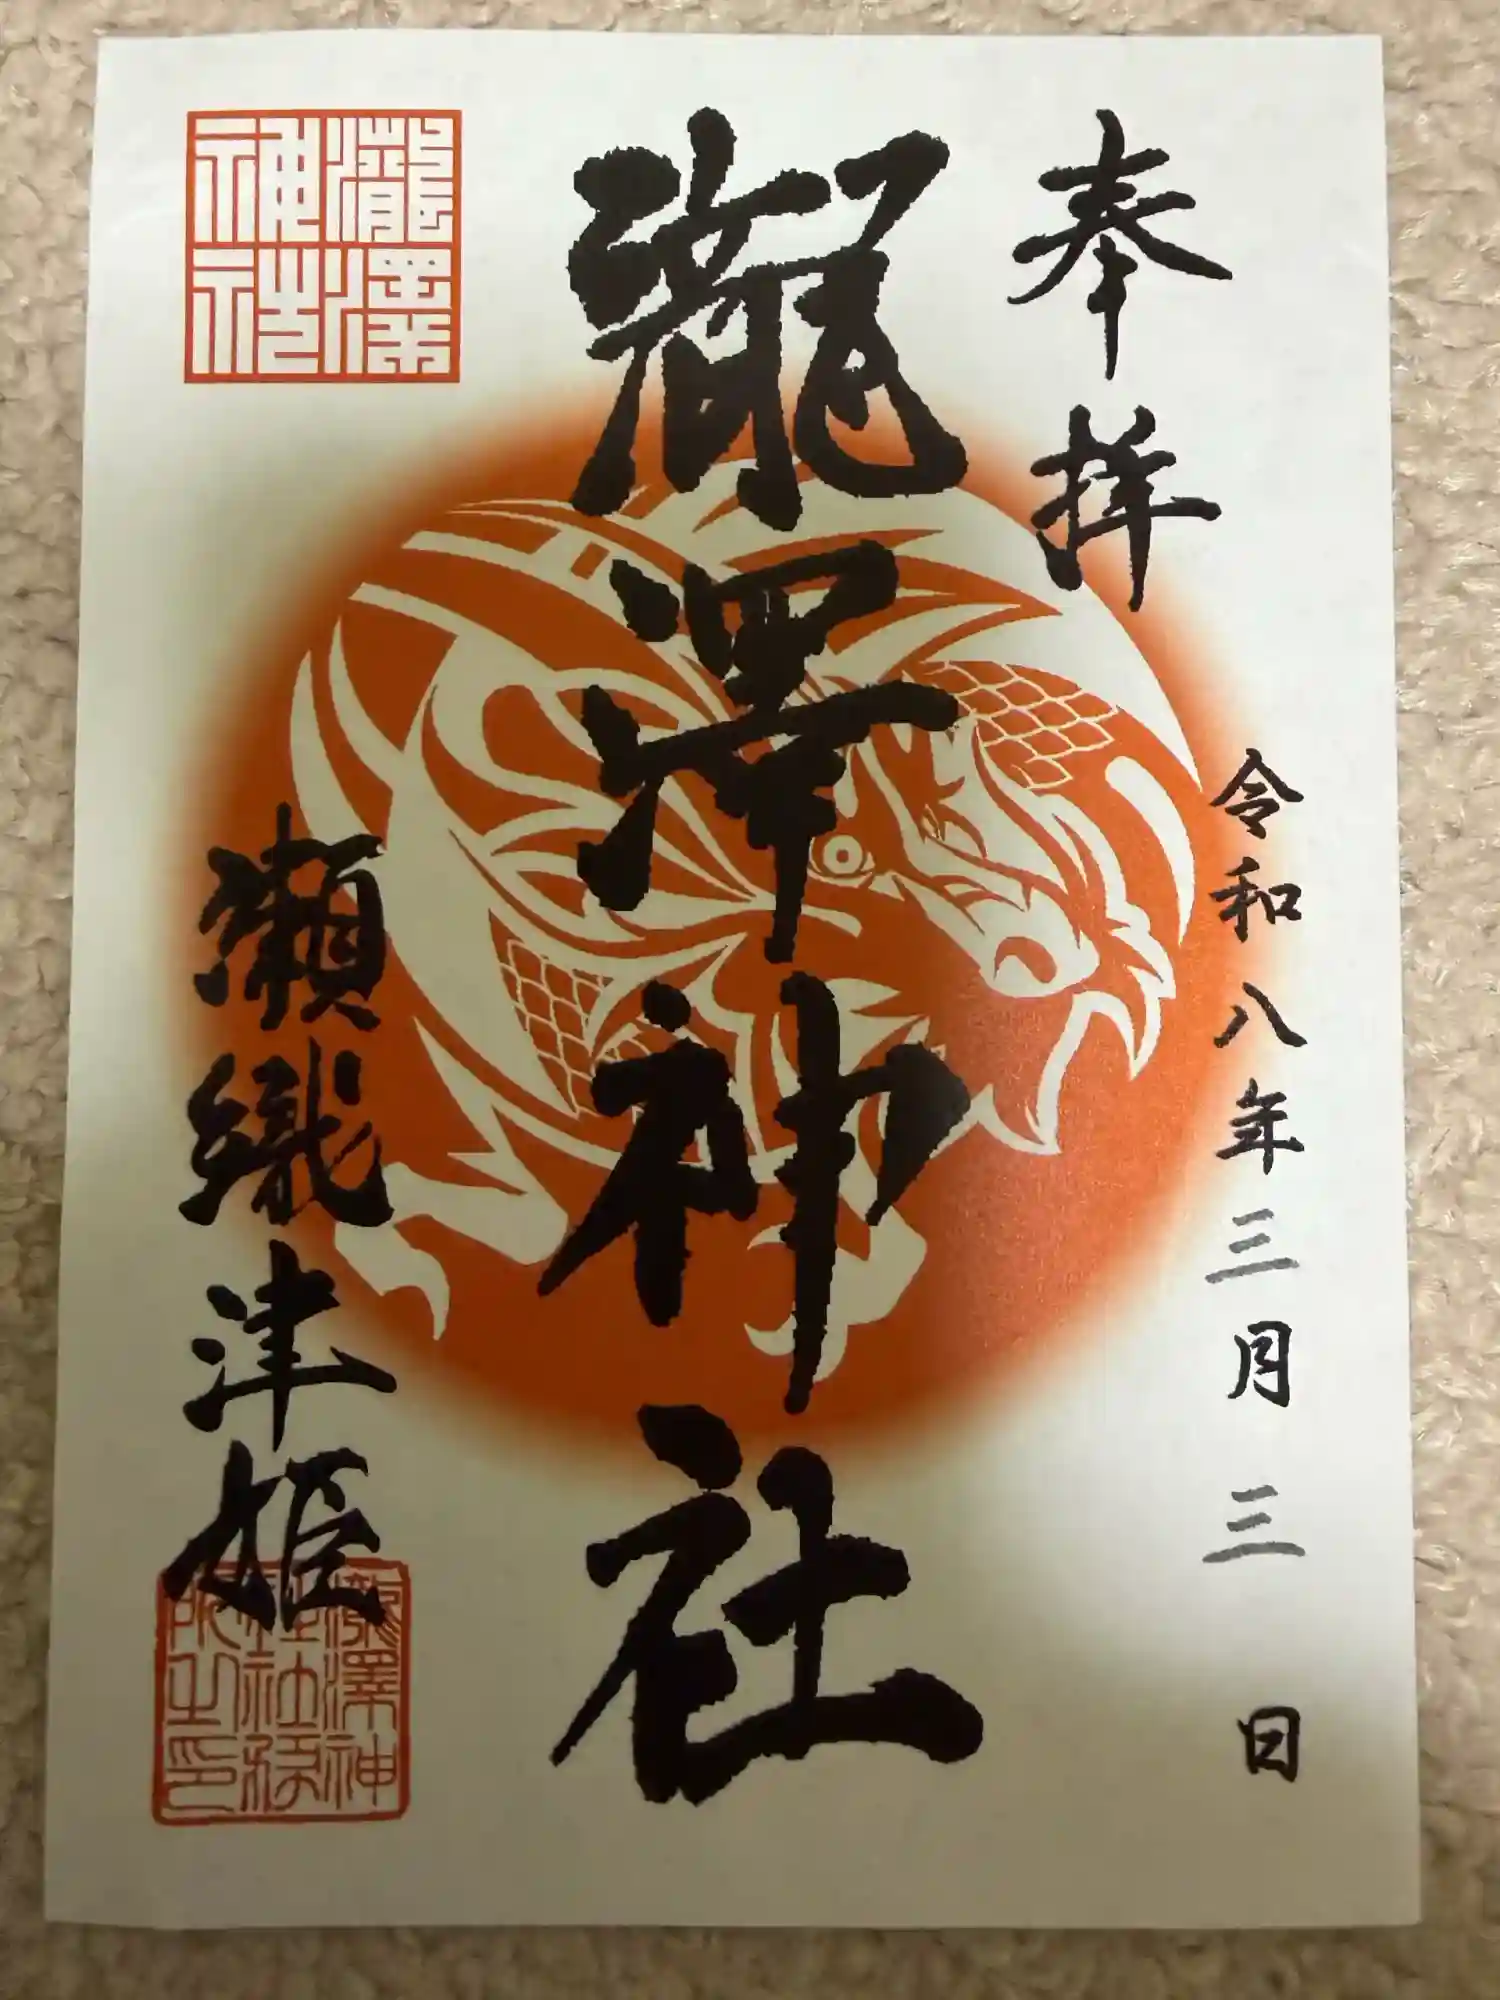 奉拝
令和八年三月三日
瀧澤神社
瀬織津姫
瀧澤神社
瀧澤神
社社務
所之印